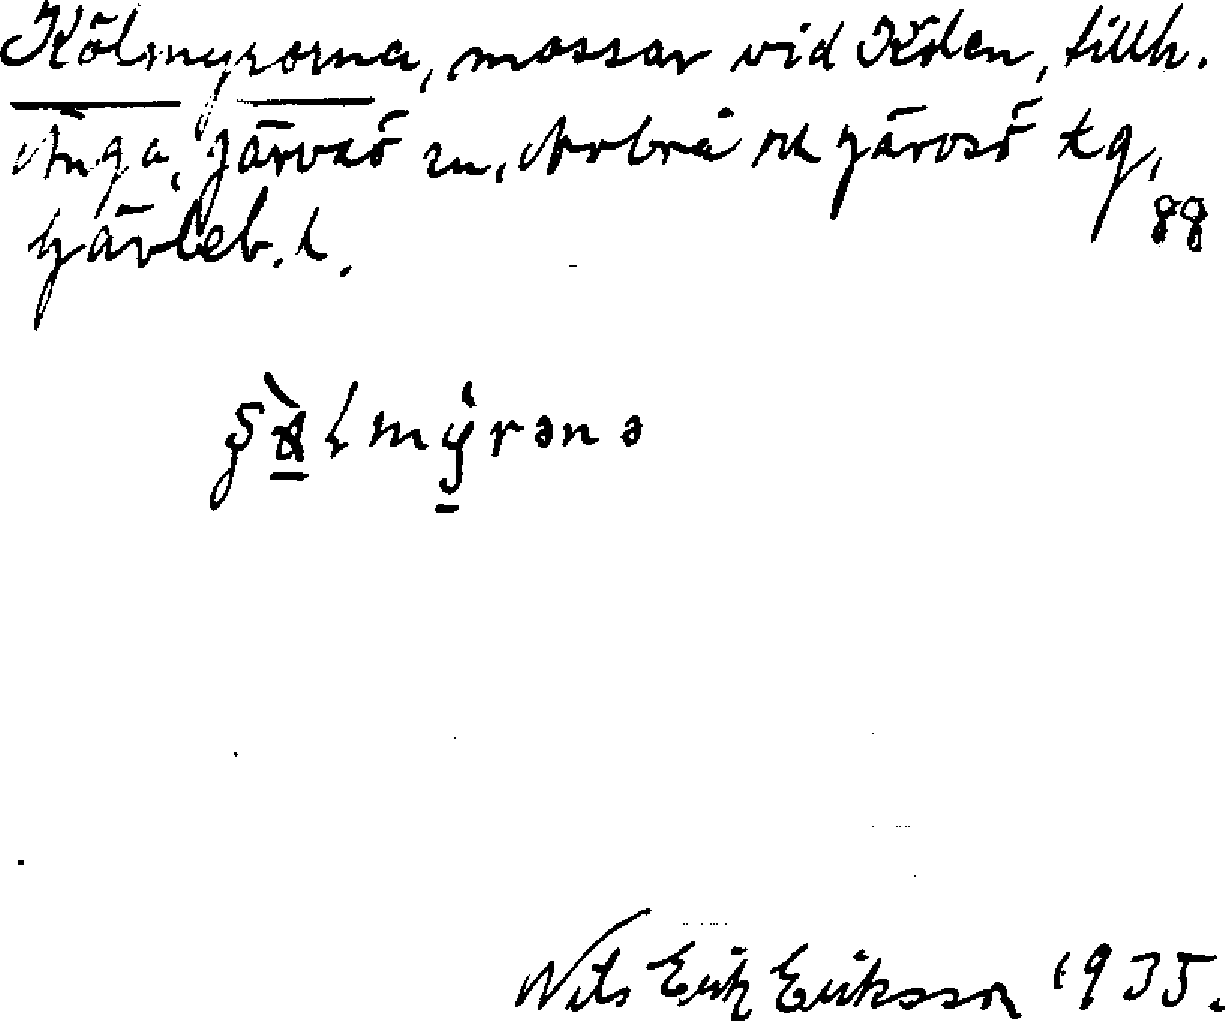 Kölmyrorna, mossar vid Kölen, tillh.
Änga, Järvsö sn, Arbrå och Järvsö tg,
Gävleb. l. 88
mýrənə
Nils Erik Eriksson 1935.